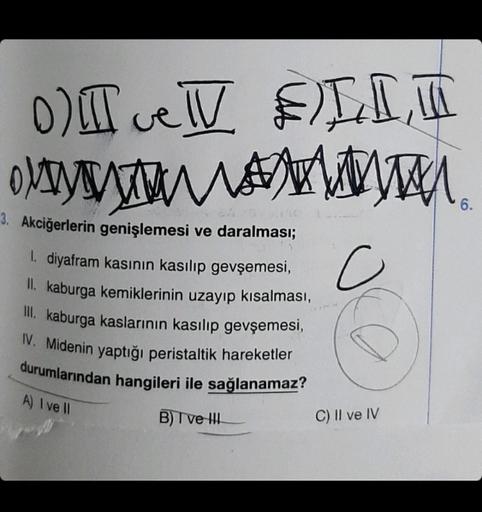 D) III ve IV E) I, II, III
6.
3. Akciğerlerin genişlemesi ve daralması;
I. diyafram kasının kasılıp gevşemesi,
C
II. kaburga kemiklerinin uzayıp kısalması,
III. kaburga kaslarının kasılıp gevşemesi,
D
IV. Midenin yaptığı peristaltik hareketler
durumlarından hangileri ile sağlanamaz?
A) I ve II B) I ve III C) II ve IV